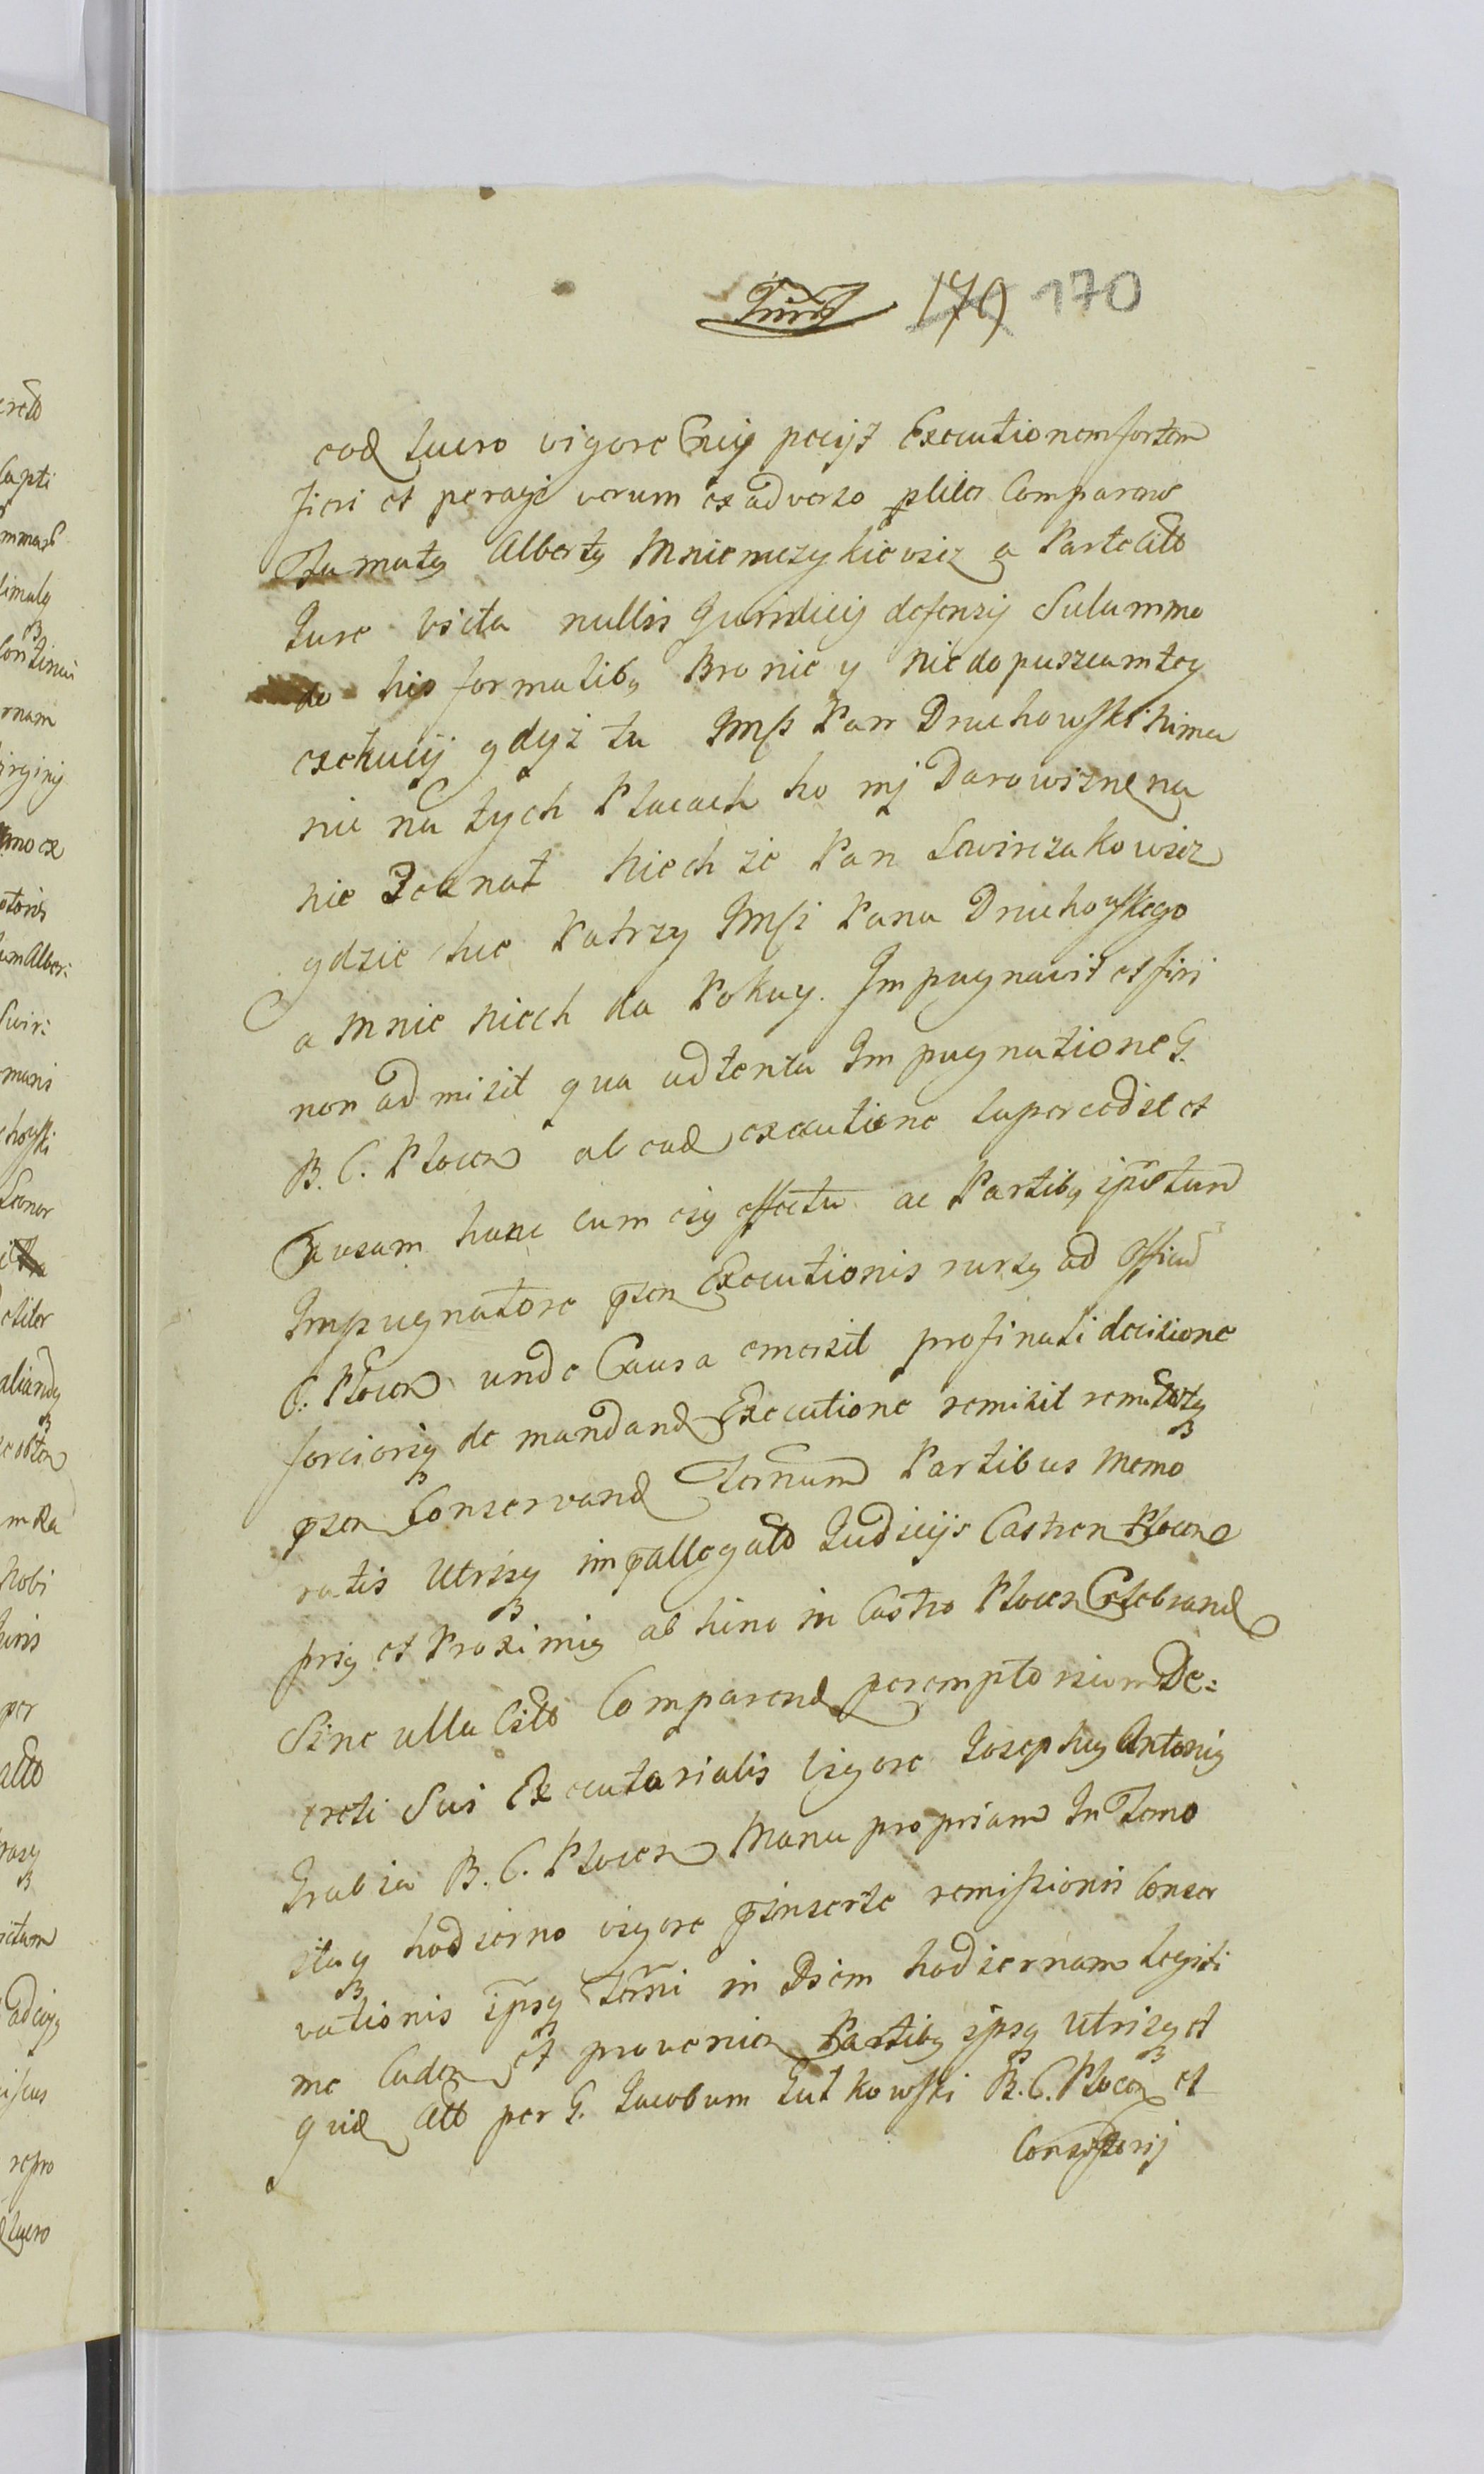 170 170
eod lucro vigore Cuiq petijt Executionem fortem
fieri et peragi verum ex adverso psliter Comparens
Famatq Albertq Mniemczykiewicz a Parte Citt
Jure victa nullis Juridicis defensij Solummo
do his formalibq Bronie y niedopuszczam tey
exekucij gdyż tu Jmsc Pan Druchowski nima
nic na tych Placach bo mj Darowizne na
nie zeznał Niechże Pan Lewinczakowicz
gdzie chce Patrzy Jmsci Pana Druchowskiego
a mnie niech da Pokuy. Impugnavit et fieri
non admisit qua adtenta Impugnatione G.
B. C. Plocen ab ead executione supercedit et
Causam hanc cum eiq effectu ac Partibq ipsis tum
Impugnatore psen Executionis rursq ad Officiu
C. Plocen unde Causa emersit pro finali decisione
forciorisq de mandand Executione remisit remittitq
psen Conservand Termum Partibus memo
ratis Utrisq in pallegato Judicijs Castren Plocen
prisq et Proximiq ab hinc in Castro Plocen Celebrand
Sine ulla Citt Comparend peremptorium De:
creti Sui Executorialis Vigore Josephq Antoniq
Grabia B. C. Plocen Manu propriam In Termo
itaq hodierno vigore psinserte remissionis Conser
vationis ipsq Termi in Diem hodiernam legiti
me Caden et provenien Partibq ipsq Utrisq et
quid Citt per G. Jacobum Lutkowski B. C. Plocen et
Consistorij